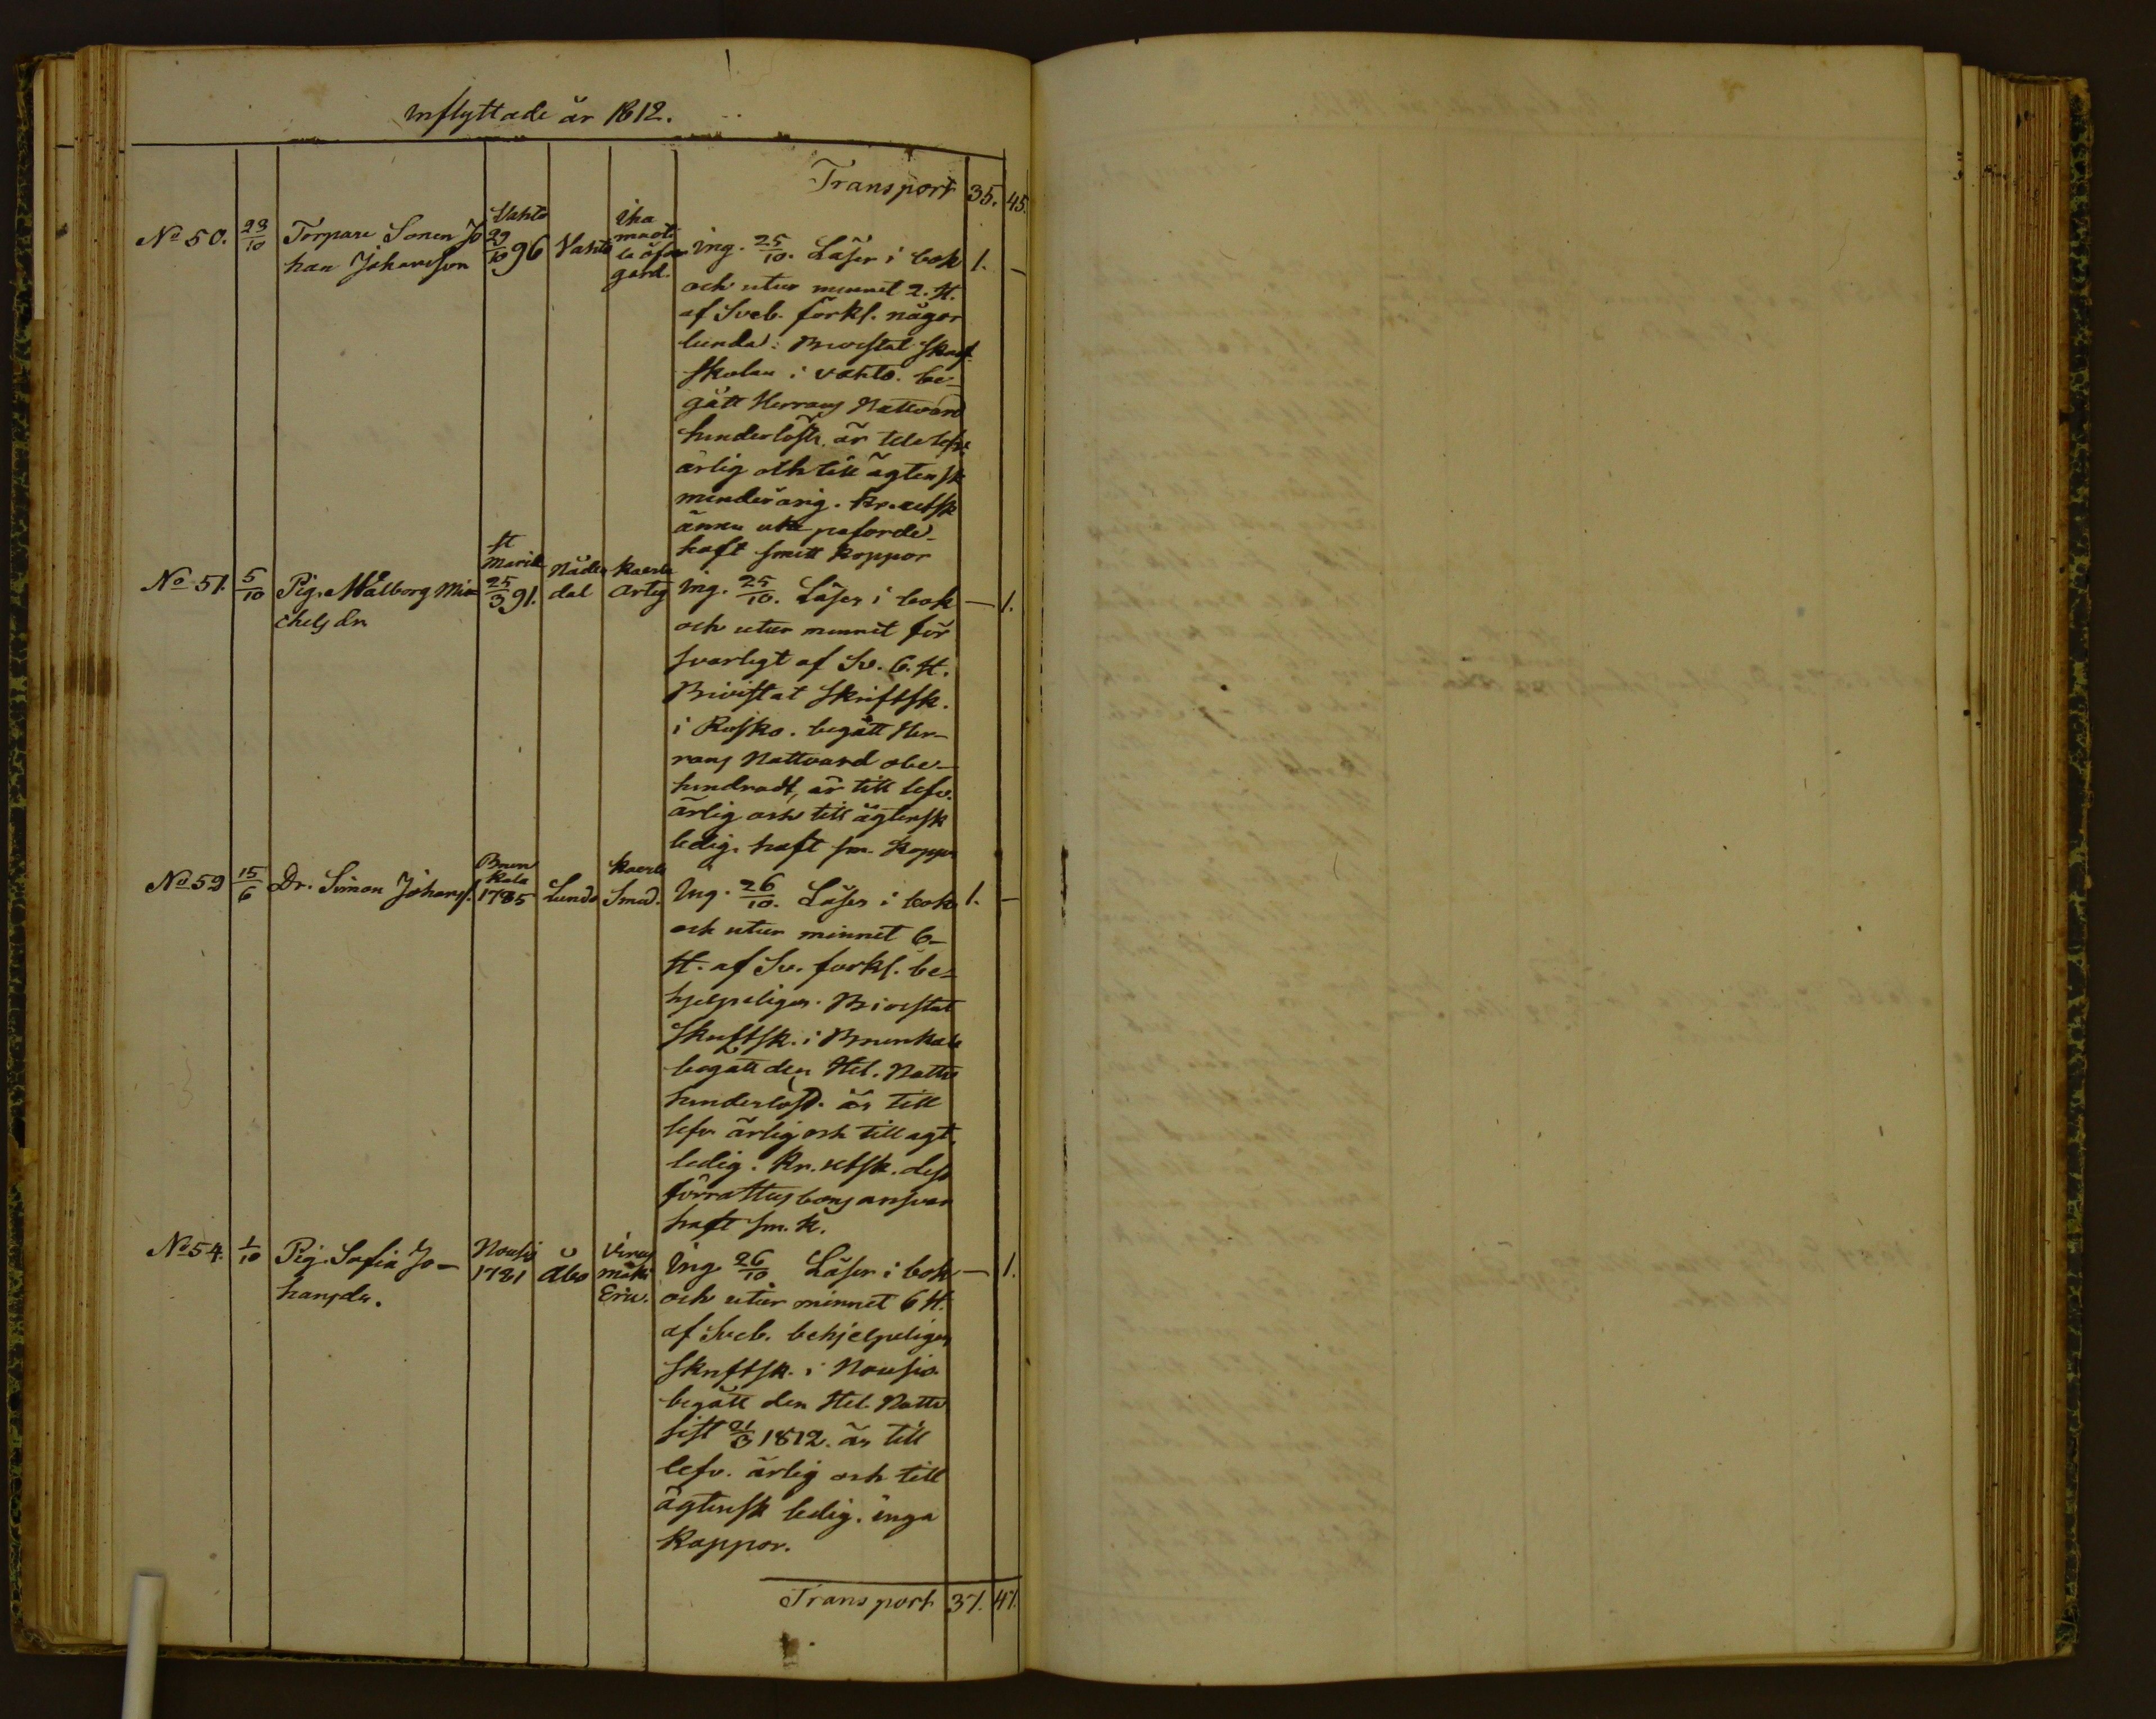 Inflyttade år 1812.
Transport 35. 45.
No 50. 23/10 Torpare Sonen Jo
han Johansson
Vahto
29/10 96 Vahto
gård.
Ing. 25/10. Läser i bok 1. –
och utur minnet 2. H.
af Sveb. förkl. någor
lunda: Bivistat Skrift
skolan i Vahto. be-
gått Herrans Nattvard
hinderlöst, är till lefv.
ärlig och till ägtensk
minderårig. Kr. utsk
ännu icke påförde.
haft smitt koppor
No 51. 5/10 Pig. Walborg Mi-
chelsdr.
St
Marie
25/3 91.
Nåden
dal
Kaerla
Arleg
Ing. 25/10. Läser i bok – 1.
och utur minnet för
svarligt af Sv. 6. H.
Bivistat Skriftsk.
i Rusko. begått Her-
rans Nattvard obe-
hindradt, är till lefv.
ärlig och till ägtensk
ledig. haft sm. koppr
No 52 15/6 Dr. Simon Johans.
Brun
kala
1785 Lundo
Kaerla
Smed.
Ing. 26/10. Läser i bok 1. –
och utur minnet 6-
H. af Sv. forkl. be-
hjelpeligen. Bivistat
Skriftsk. i Brunkala
begått den Hel. Nattv
hinderlöst. är till
lefv ärlig och till agt.
ledig. Kr. utsk. dess
förrättes ansvar
haft sm. k.
No 54. 1/10 Pig. Safia Jo-
hansdr.
Nousis
1781 Åbo
mäki
Eric.
Ing. 26/10 Läser i bok – 1.
och utur minnet 6 H.
af Sveb. behjelpeligen
Skriftsk. i Nousis.
begått den Hel. Nattv
sist 21/3 1812. är till
lefv. ärlig och till
ägtensk ledig. inga
koppor.
Transport 37. 47.